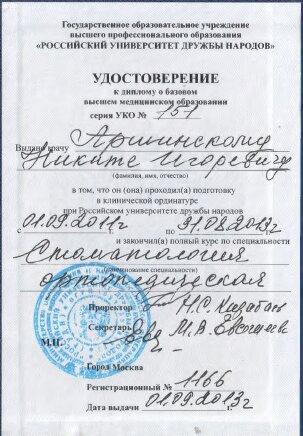 Государственное образовательное учреждение
высшего профессионального образования
«РОССИЙСКИЙ УНИВЕРСИТЕТ ДРУЖБЫ НАРОДОВ»
УДОСТОВЕРЕНИЕ
к диплому о базовом
высшем медицинском образовании
серия УКО № 151
Выдано врачу Аршинскому
Никите Игоревичу
(фамилия, имя, отчество)
в том, что он (она) проходил(а) подготовку
в клинической ординатуре
при Российском университете дружбы народов
с 01.09.2011г по 31.08.2013г
и закончил(а) полный курс по специальности
Стоматология
(наименование специальности)
ортопедическая
Проректор Н.С.
Секретарь М.В.
М.П.
Город Москва
Регистрационный № 1166
Дата выдачи 01.09.2013г г.